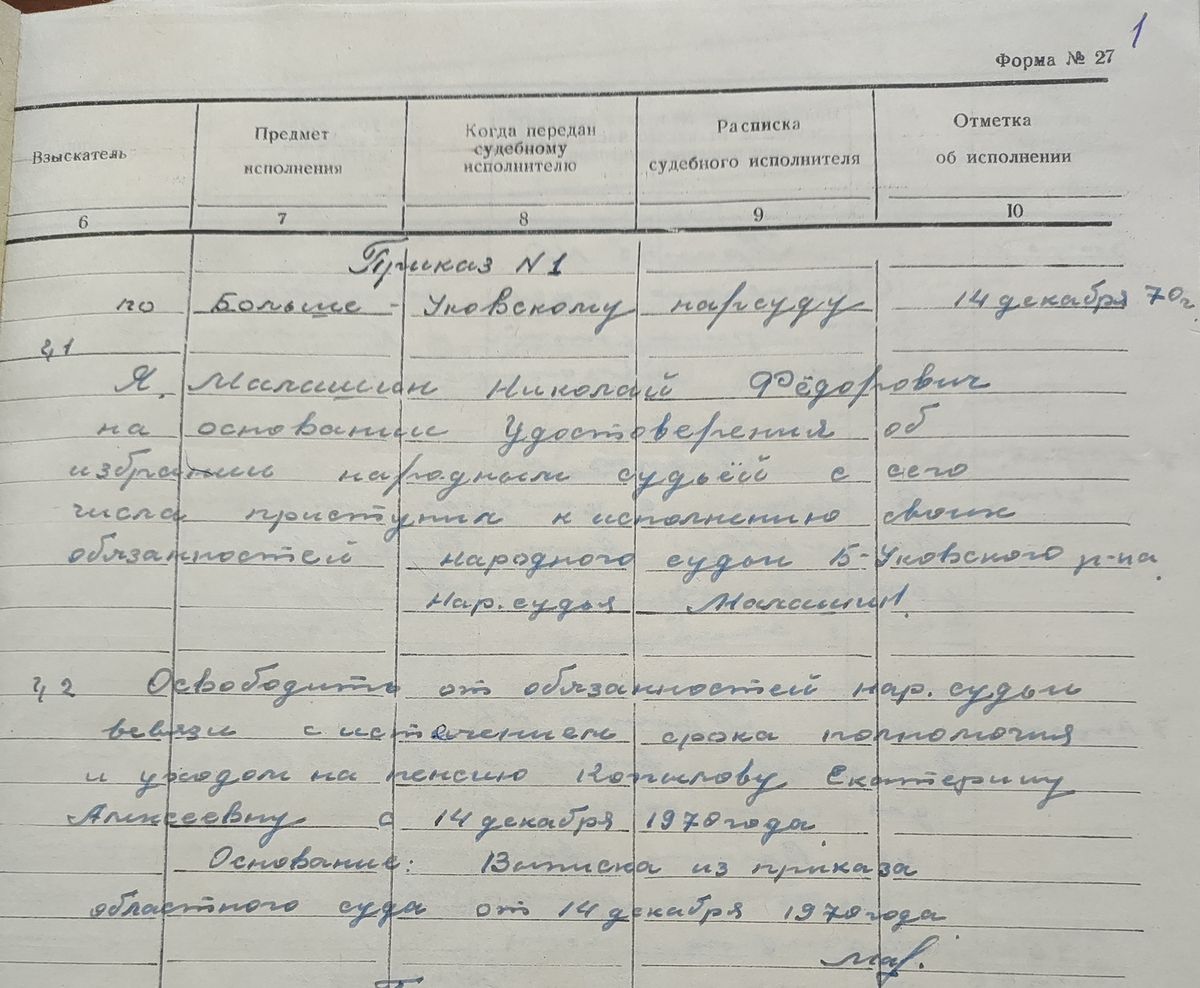 1
Форма № 27
Взыскатель
Предмет исполнения
Когда передан судебному исполнителю
Расписка судебного исполнителя
Отметка об исполнении
6 7 8 9 10
Приказ N 1
по Больше-Уковскому нарсуду 14 декабря 70г.
§ 1
Я, Малашин Николай Фёдорович
на основании Удостоверения об
избрании народным судьёй с сего
числа приступил к исполнению своих
обязанностей народного судьи Б-Уковского р-на
Нар. судья Малашин.
§ 2 Освободить от обязанностей нар. судьи
ввязи с истечением срока полномочия
и уходом на пенсию Копылову Екатерину
Алексеевну с 14 декабря 1970 года
Основание: Выписка из приказа
областного суда от 14 декабря 1970 года